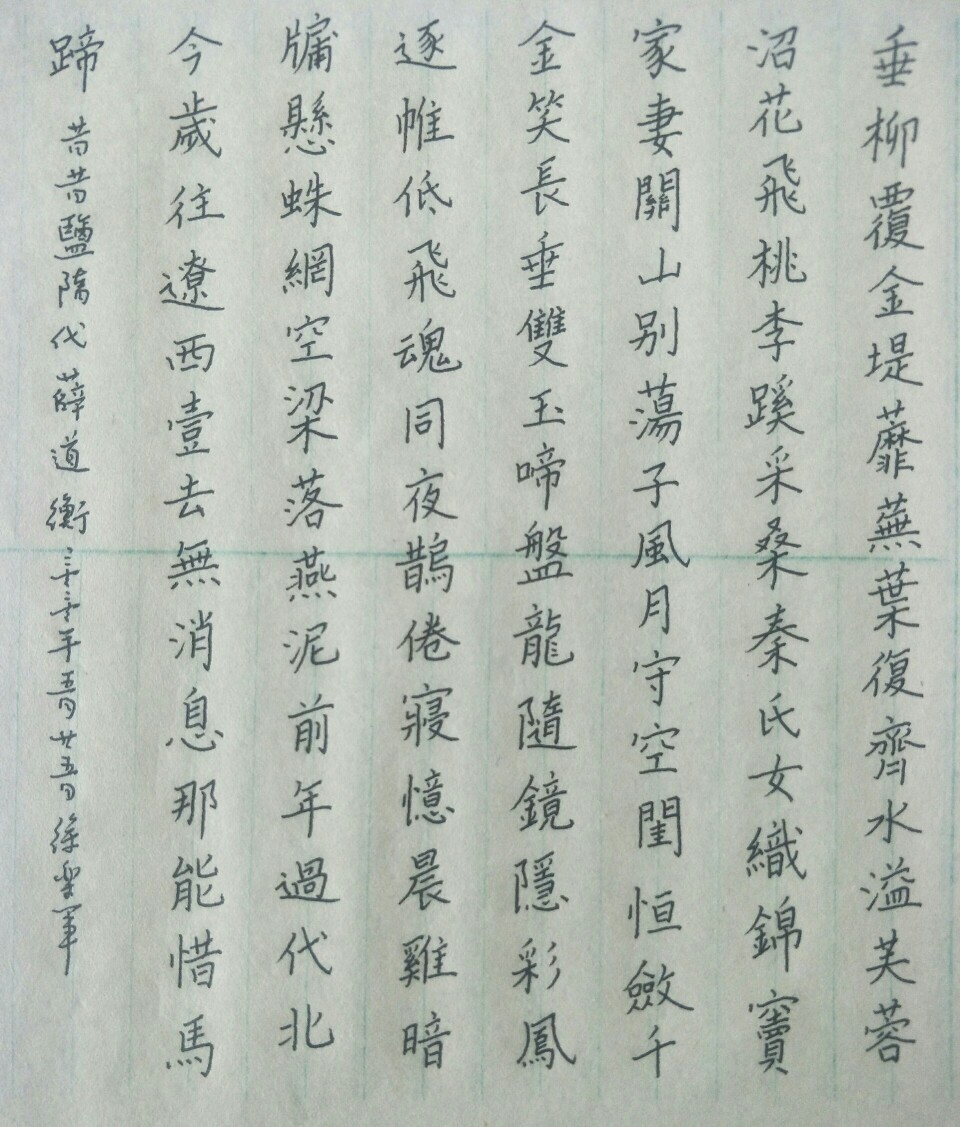 垂柳覆金堤蘼蕪葉復齊水溢芙蓉
沼花飛桃李蹊采桑秦氏女織錦竇
家妻關山别蕩子風月守空閨恒斂千
金笑長垂雙玉啼盤龍隨鏡隱彩鳳
逐帷低飛魂同夜鵲倦寢憶晨雞暗
牖懸蛛網空梁落燕泥前年過代北
今歲往遼西壹去無消息那能惜馬
蹄 昔昔鹽隋代薛道衡年五月廿五日徐軍